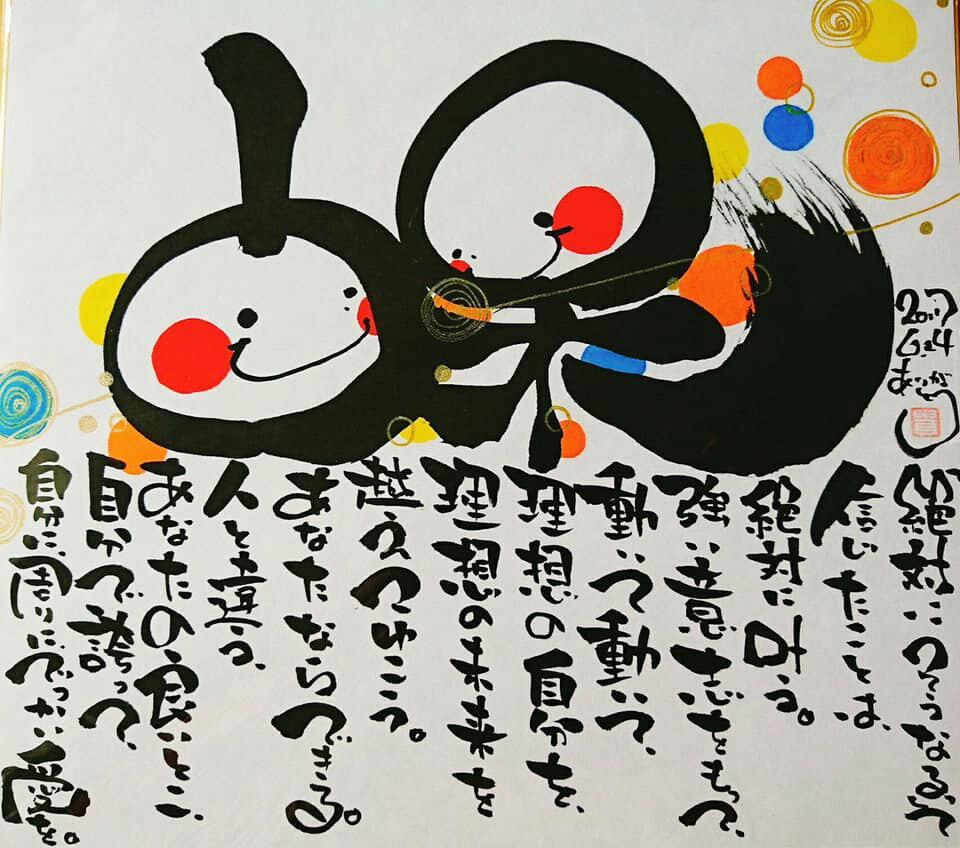 2017
6.24
絶対にそうなるって
信じたことは、
絶対に叶う。
強い意志をもって、
動いて動いて、
理想の自分を、
理想の未来を
越えてゆこう。
あなたならできる。
人と違う、
あなたの良いとこ、
自分で誇って、
自分に、周りにでっかい愛を。